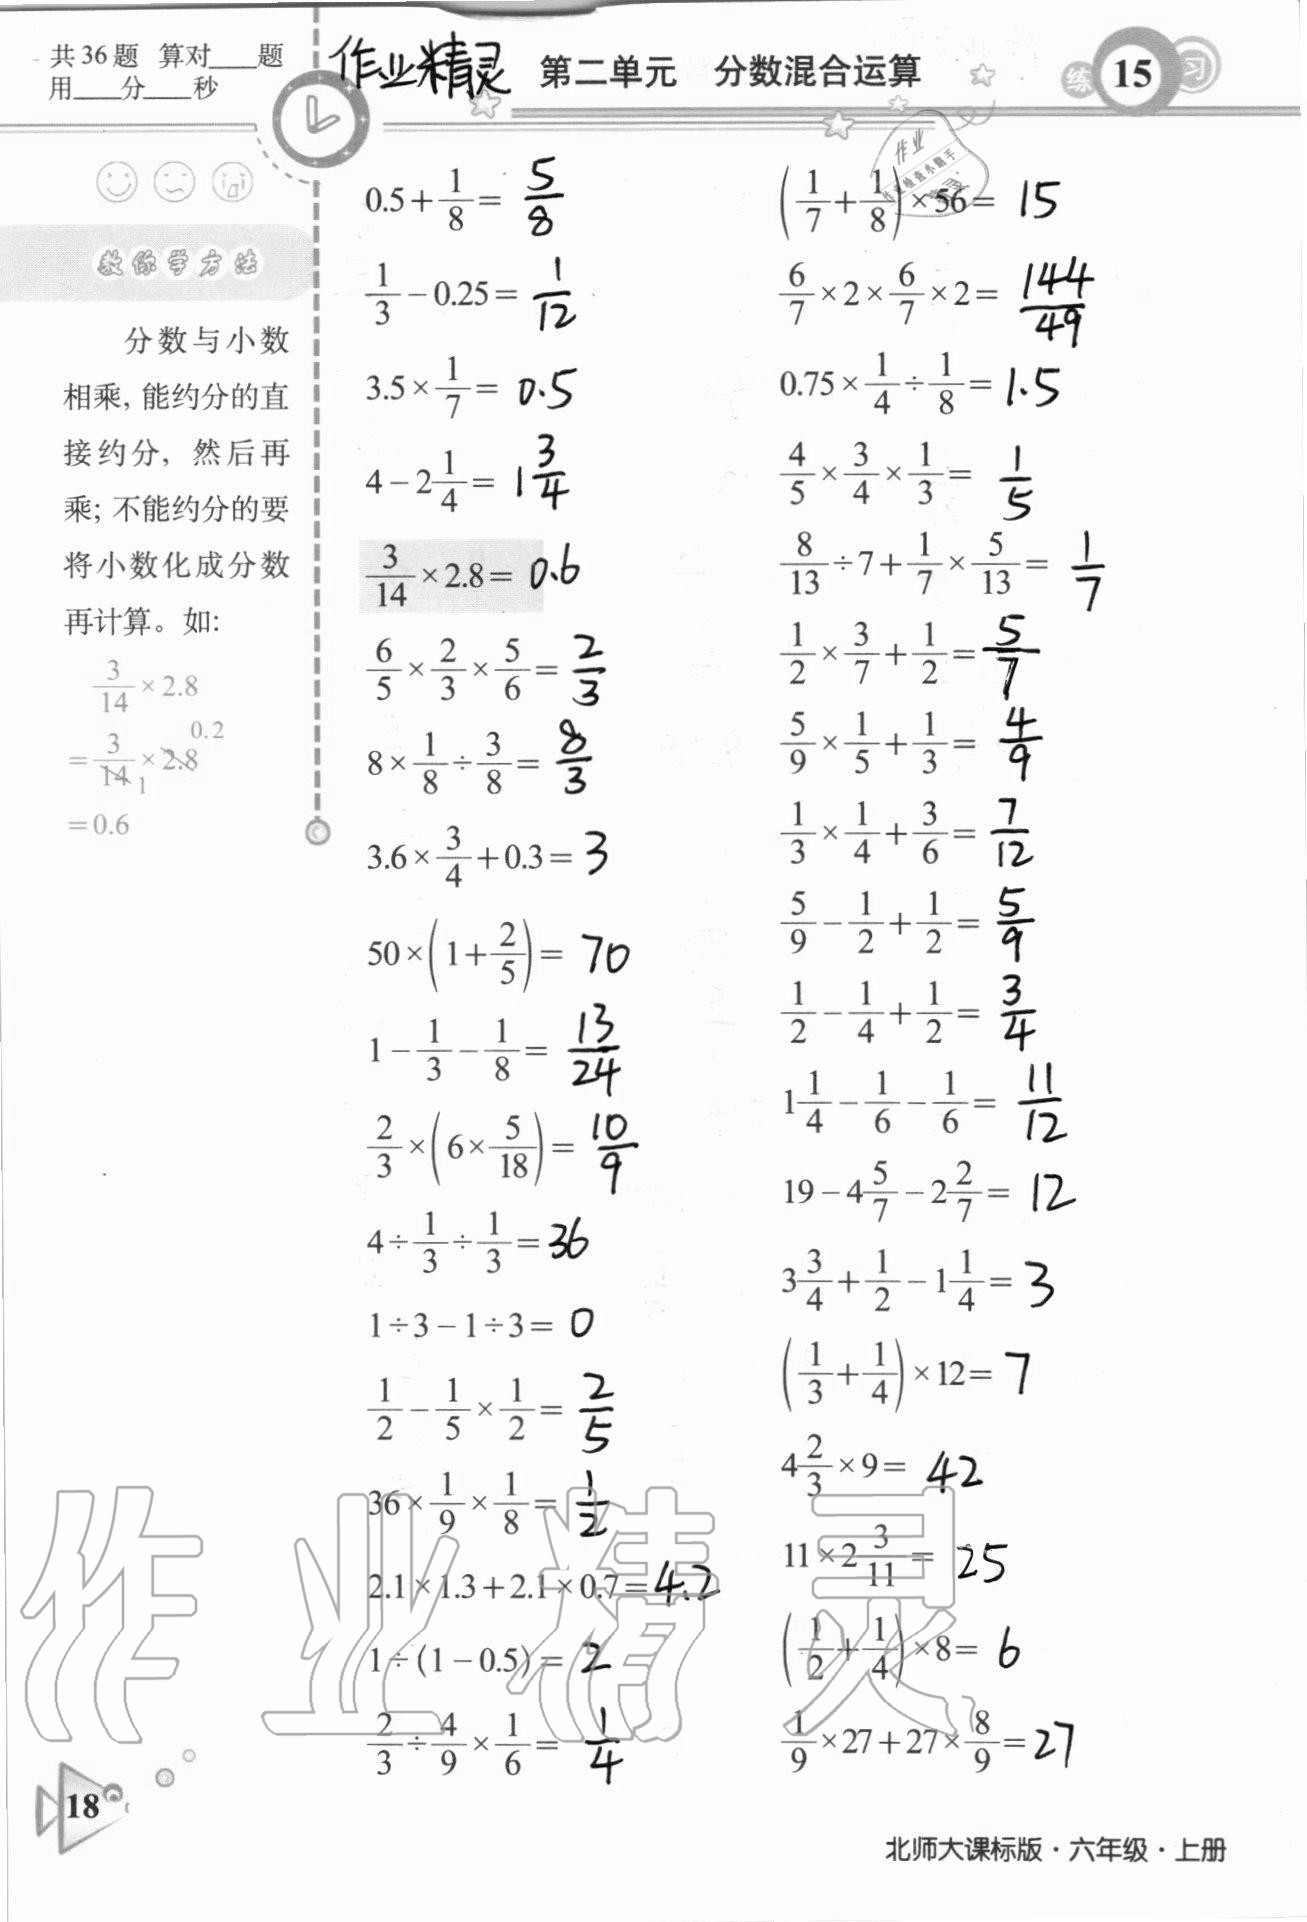 共36题 算对____题
用____分____秒
作业精灵
第二单元 分数混合运算
练 15 习
教你学方法
分数与小数
相乘, 能约分的直
接约分, 然后再
乘; 不能约分的要
将小数化成分数
再计算。如:
3/14 × 2.8
0.2
= 3/14 × 2.8
1
= 0.6
0.5 + 1/8 = 5/8
1/3 - 0.25 = 1/12
3.5 × 1/7 = 0.5
4 - 2 1/4 = 1 3/4
3/14 × 2.8 = 0.6
6/5 × 2/3 × 5/6 = 2/3
8 × 1/8 ÷ 3/8 = 8/3
3.6 × 3/4 + 0.3 = 3
50 × (1 + 2/5) = 70
1 - 1/3 - 1/8 = 13/24
2/3 × (6 × 5/18) = 10/9
4 ÷ 1/3 ÷ 1/3 = 36
1 ÷ 3 - 1 ÷ 3 = 0
1/2 - 1/5 × 1/2 = 2/5
36 × 1/9 × 1/8 = 1/2
2.1 × 1.3 + 2.1 × 0.7 = 4.2
1 ÷ (1 - 0.5) = 2
2/3 ÷ 4/9 × 1/6 = 1/4
(1/7 + 1/8) × 56 = 15
6/7 × 2 × 6/7 × 2 = 144/49
0.75 × 1/4 ÷ 1/8 = 1.5
4/5 × 3/4 × 1/3 = 1/5
8/13 ÷ 7 + 1/7 × 5/13 = 1/7
1/2 × 3/7 + 1/2 = 5/7
5/9 × 1/5 + 1/3 = 4/9
1/3 × 1/4 + 3/6 = 7/12
5/9 - 1/2 + 1/2 = 5/9
1/2 - 1/4 + 1/2 = 3/4
1 1/4 - 1/6 - 1/6 = 11/12
19 - 4 5/7 - 2 2/7 = 12
3 3/4 + 1/2 - 1 1/4 = 3
(1/3 + 1/4) × 12 = 7
4 2/3 × 9 = 42
11 × 2 3/11 = 25
(1/2 + 1/4) × 8 = 6
1/9 × 27 + 27 × 8/9 = 27
作业精灵
18
北师大课标版·六年级·上册